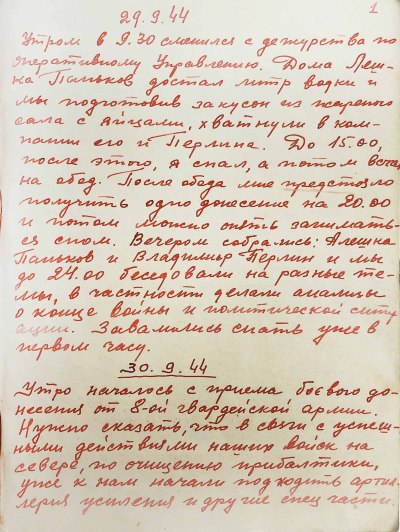 1
29.9.44
Утром в 9.30 сменился с дежурства по
оперативному Управлению. Дома Леш-
ка Паньков достал литр водки и
мы подготовив закусон из жареного
сала с яйцами, хватнули в ком-
пании его и Перлина. До 15.00,
после этого, я спал, а потом встал
на обед. После обеда мне предстояло
получить одно донесение на 20.00
и потом можно опять занимать-
ся сном. Вечером собрались: Алешка
Паньков и Владимир Перлин и мы
до 24.00 беседовали на разные те-
мы, в частности делали анализы
о конце войны и политической ситу
ации. Завалились спать уже в
первом часу.
30.9.44
Утро началось с приема боевого до-
несения от 8-ой гвардейской армии.
Нужно сказать, что в связи с успеш-
ными действиями наших войск на
севере, по очищению прибалтики,
уже к нам начали подходить артил-
лерия усиления и другие спец части.